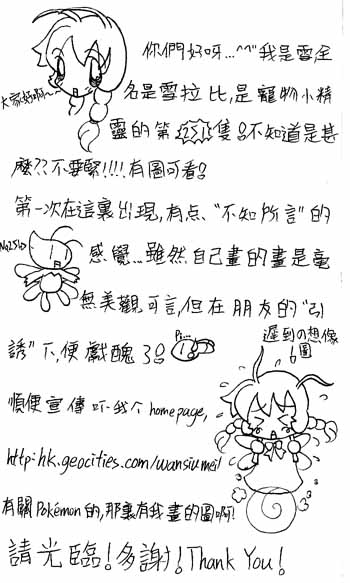 大家好啊~
你們好呀...^^"我是雪,全
名是雪拉比,是寵物小精
靈的第251隻。不知道是甚
麼??不要緊!!!!有圖可看。
第一次在這裏出現,有点、"不知所言"的
No.251
感覺...雖然自己畫的畫是毫
無美觀可言,但在朋友的"引
誘"下,便獻醜了。
Pi...
遲到の想像
圖
順便宣傳吓我个homepage,
http:hk.geocities.com/wansiumei
有關Pokémon的,那裏有我畫的圖啊!
請光臨!多謝!Thank You!